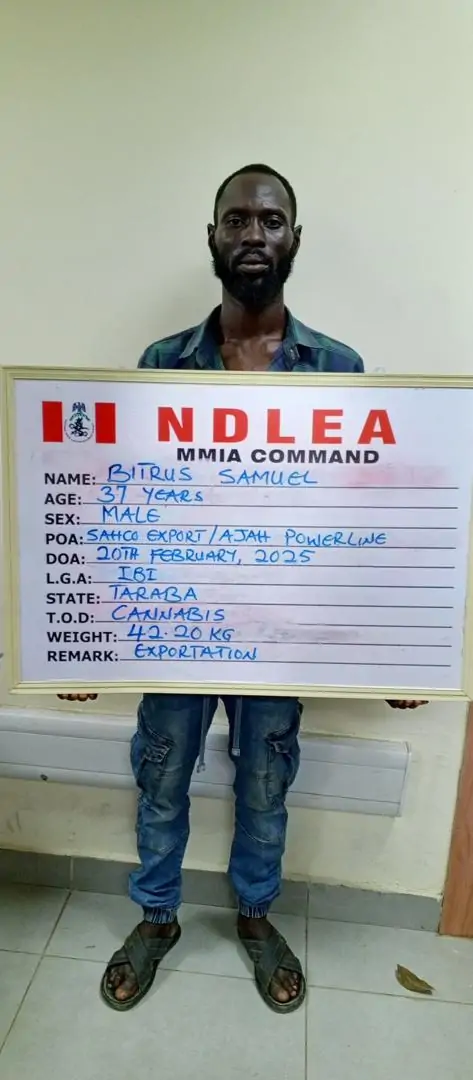 NDLEA
MMIA COMMAND
NAME: BITRUS SAMUEL
AGE: 37 YEARS
SEX: MALE
POA: SAHCO EXPORT/AJAH POWERLINE
DOA: 20TH FEBRUARY, 2025
L.G.A: IBI
STATE: TARABA
T.O.D: CANNABIS
WEIGHT: 42.20 KG
REMARK: EXPORTATION